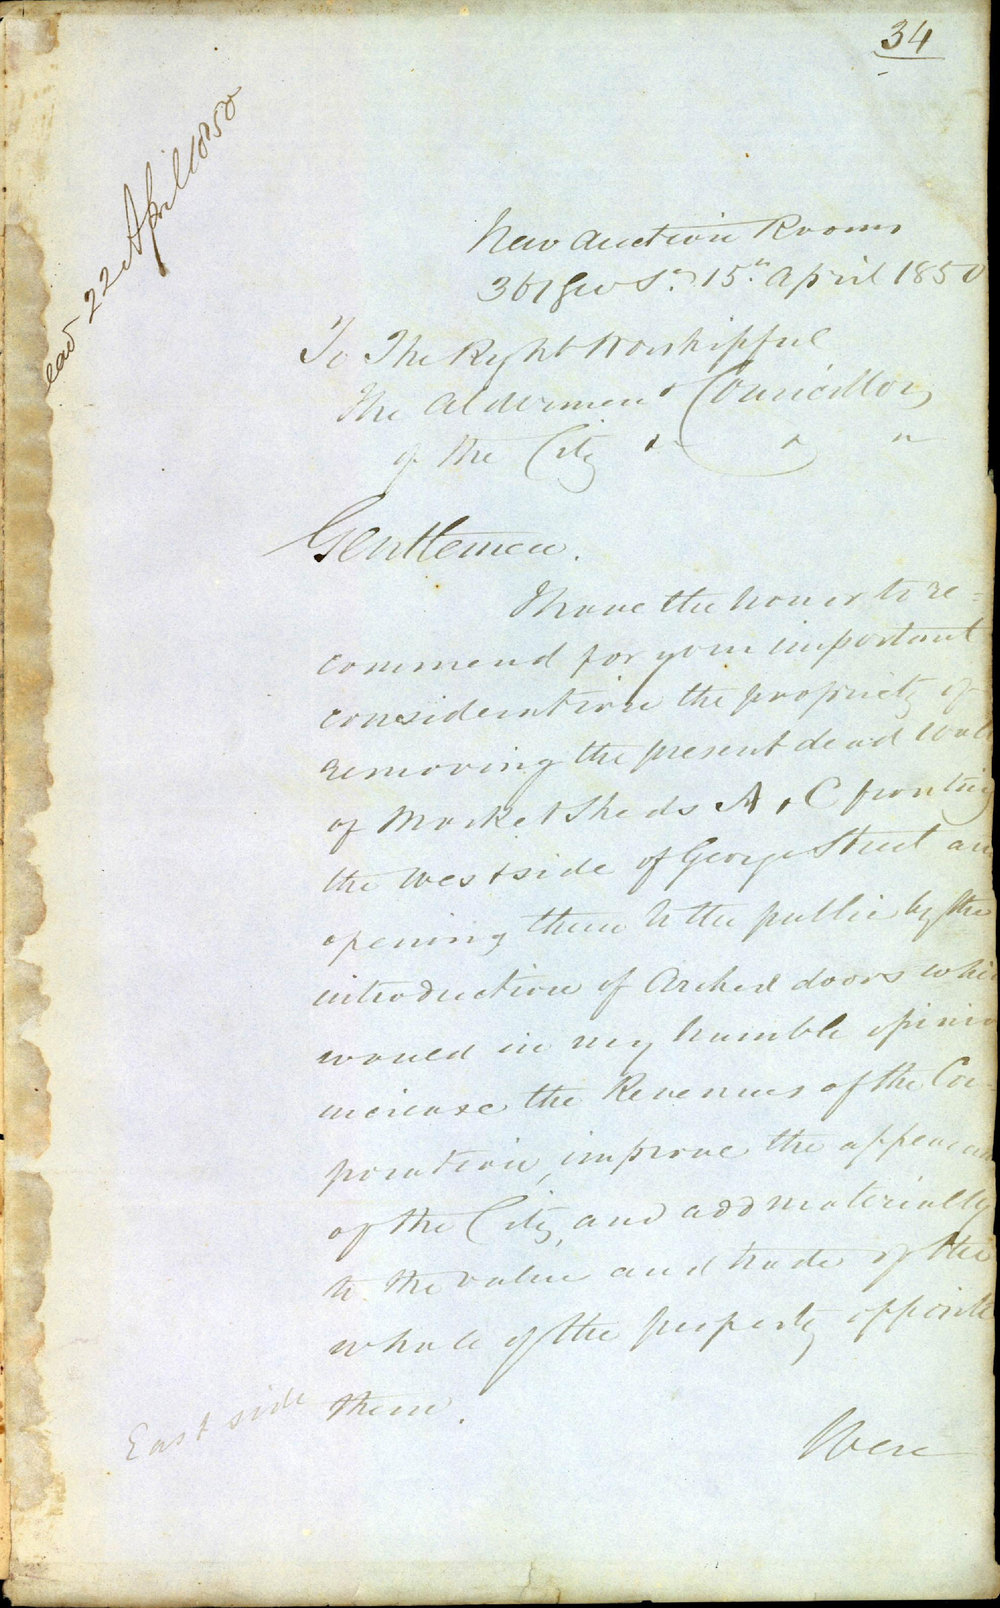 34
ead 22 April 1850
New Auction Rooms
361 Geo St. 15th April 1850
To The Right Worshipful
The Aldermen & Councillors
of the City " " "
Gentlemen.
I have the honor to re=
commend for your important
consideration the propriety of
removing the present dead wall
of Market Sheds A & C fronting
the west side of George Street an
opening them to the public by the
introduction of Arched doors whi
would in my humble opinio
increase the Revenues of the Cor
poration, improve the appearan
of the City, and add materially
to the value and trade of the
whole of the property opposite
them.
East side
Were